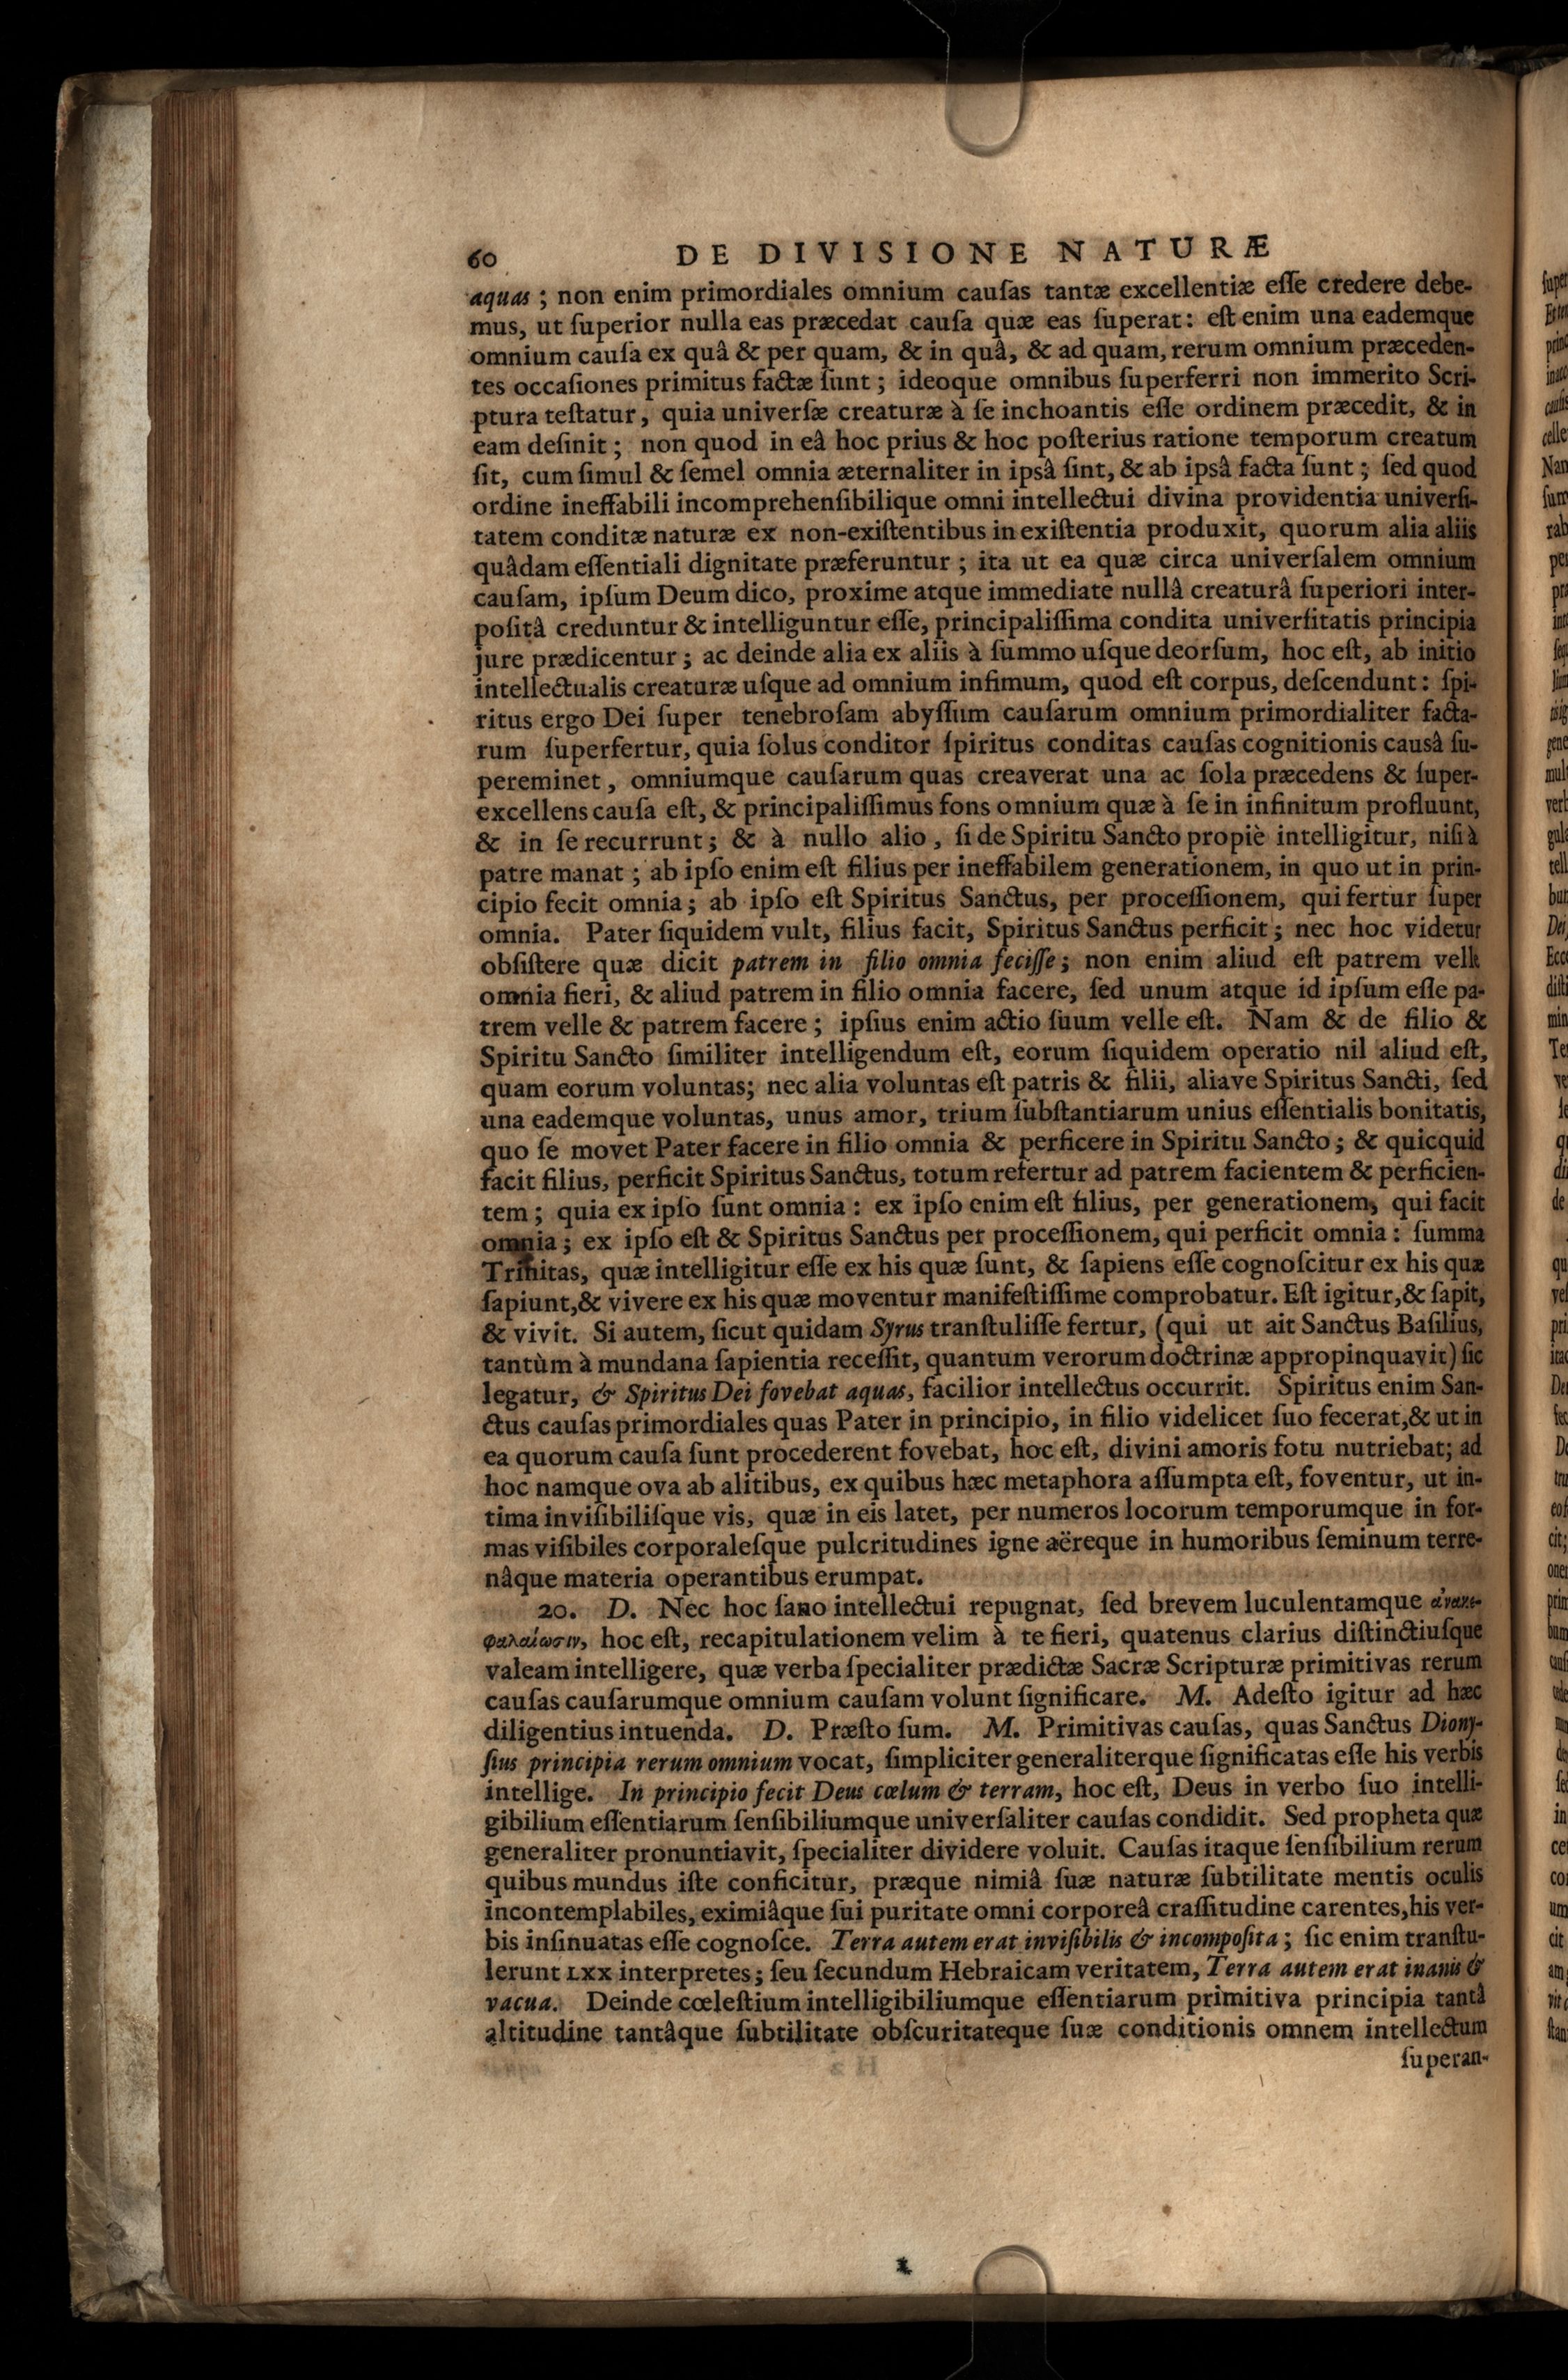 60 DE DIVISIONE NATURÆ
aquas ; non enim primordiales omnium cauſas tantæ excellentiæ eſſe credere debe-
mus, ut ſuperior nulla eas præcedat cauſa quæ eas ſuperat: eſt enim una eademque
omnium cauſa ex quâ & per quam, & in quâ, & ad quam, rerum omnium præceden-
tes occaſiones primitus factæ ſunt ; ideoque omnibus ſuperferri non immerito Scri-
ptura teſtatur, quia univerſæ creaturæ à ſe inchoantis eſſe ordinem præcedit, & in
eam deſinit ; non quod in eâ hoc prius & hoc poſterius ratione temporum creatum
ſit, cum ſimul & ſemel omnia æternaliter in ipsâ ſint, & ab ipsâ facta ſunt ; ſed quod
ordine ineffabili incomprehenſibilique omni intellectui divina providentia univerſi-
tatem conditæ naturæ ex non-exiſtentibus in exiſtentia produxit, quorum alia aliis
quâdam eſſentiali dignitate præferuntur ; ita ut ea quæ circa univerſalem omnium
cauſam, ipſum Deum dico, proxime atque immediate nullâ creaturâ ſuperiori inter-
poſitâ creduntur & intelliguntur eſſe, principaliſſima condita univerſitatis principia
jure prædicentur ; ac deinde alia ex aliis à ſummo uſque deorſum, hoc eſt, ab initio
intellectualis creaturæ uſque ad omnium infimum, quod eſt corpus, deſcendunt : ſpi-
ritus ergo Dei ſuper tenebroſam abyſſum cauſarum omnium primordialiter facta-
rum ſuperfertur, quia ſolus conditor ſpiritus conditas cauſas cognitionis causâ ſu-
pereminet , omniumque cauſarum quas creaverat una ac ſola præcedens & ſuper-
excellens cauſa eſt, & principaliſſimus fons omnium quæ à ſe in infinitum profluunt,
& in ſe recurrunt ; & à nullo alio , ſi de Spiritu Sancto propiè intelligitur, niſi à
patre manat ; ab ipſo enim eſt filius per ineffabilem generationem, in quo ut in prin-
cipio fecit omnia ; ab ipſo eſt Spiritus Sanctus, per proceſſionem, qui fertur ſuper
omnia. Pater ſiquidem vult, filius facit, Spiritus Sanctus perficit ; nec hoc videtur
obſiſtere quæ dicit patrem in filio omnia feciſſe ; non enim aliud eſt patrem velle
omnia fieri, & aliud patrem in filio omnia facere, ſed unum atque id ipſum eſſe pa-
trem velle & patrem facere ; ipſius enim actio ſuum velle eſt. Nam & de filio &
Spiritu Sancto ſimiliter intelligendum eſt, eorum ſiquidem operatio nil aliud eſt,
quam eorum voluntas; nec alia voluntas eſt patris & filii, aliave Spiritus Sancti, ſed
una eademque voluntas, unus amor, trium ſubſtantiarum unius eſſentialis bonitatis,
quo ſe movet Pater facere in filio omnia & perficere in Spiritu Sancto ; & quicquid
facit filius, perficit Spiritus Sanctus, totum refertur ad patrem facientem & perficien-
tem ; quia ex ipſo ſunt omnia : ex ipſo enim eſt filius, per generationem, qui facit
omnia ; ex ipſo eſt & Spiritus Sanctus per proceſſionem, qui perficit omnia : ſumma
Trinitas, quæ intelligitur eſſe ex his quæ ſunt, & ſapiens eſſe cognoſcitur ex his quæ
ſapiunt,& vivere ex his quæ moventur manifeſtiſſime comprobatur. Eſt igitur,& ſapit,
& vivit. Si autem, ſicut quidam Syrus tranſtuliſſe fertur, (qui ut ait Sanctus Baſilius,
tantùm à mundana ſapientia receſſit, quantum verorum doctrinæ appropinquavit) ſic
legatur, & Spiritus Dei fovebat aquas, facilior intellectus occurrit. Spiritus enim San-
ctus cauſas primordiales quas Pater in principio, in filio videlicet ſuo fecerat,& ut in
ea quorum cauſa ſunt procederent fovebat, hoc eſt, divini amoris fotu nutriebat; ad
hoc namque ova ab alitibus, ex quibus hæc metaphora aſſumpta eſt, foventur, ut in-
tima inviſibiliſque vis, quæ in eis latet, per numeros locorum temporumque in for-
mas viſibiles corporaleſque pulcritudines igne aëreque in humoribus ſeminum terre-
nâque materia operantibus erumpat.
20. D. Nec hoc ſano intellectui repugnat, ſed brevem luculentamque ἀνακε-
φαλαίωσιν, hoc eſt, recapitulationem velim à te fieri, quatenus clarius diſtinctiuſque
valeam intelligere, quæ verba ſpecialiter prædictæ Sacræ Scripturæ primitivas rerum
cauſas cauſarumque omnium cauſam volunt ſignificare. M. Adeſto igitur ad hæc
diligentius intuenda. D. Præſto ſum. M. Primitivas cauſas, quas Sanctus Diony-
ſius principia rerum omnium vocat, ſimpliciter generaliterque ſignificatas eſſe his verbis
intellige. In principio fecit Deus cœlum & terram, hoc eſt, Deus in verbo ſuo intelli-
gibilium eſſentiarum ſenſibiliumque univerſaliter cauſas condidit. Sed propheta quæ
generaliter pronuntiavit, ſpecialiter dividere voluit. Cauſas itaque ſenſibilium rerum
quibus mundus iſte conficitur, præque nimiâ ſuæ naturæ ſubtilitate mentis oculis
incontemplabiles, eximiâque ſui puritate omni corporeâ craſſitudine carentes,his ver-
bis inſinuatas eſſe cognoſce. Terra autem erat inviſibilis & incompoſita ; ſic enim tranſtu-
lerunt LXX interpretes ; ſeu ſecundum Hebraicam veritatem, Terra autem erat inanis &
vacua. Deinde cœleſtium intelligibiliumque eſſentiarum primitiva principia tantâ
altitudine tantâque ſubtilitate obſcuritateque ſuæ conditionis omnem intellectum
ſuperan-